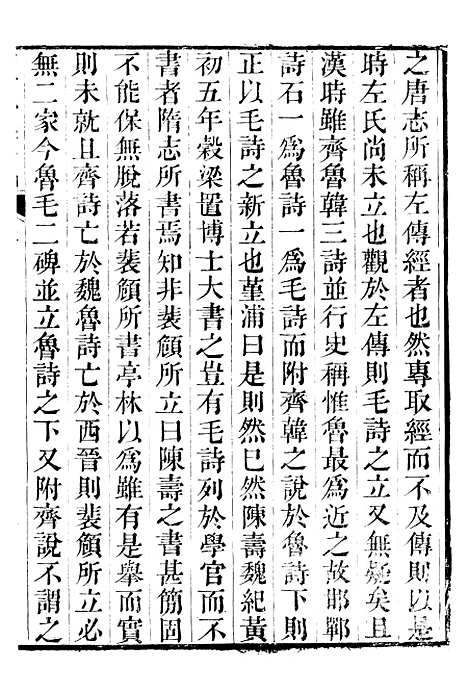 之唐志所稱左傳經者也然專取經而不及傳則以是
時左氏尚未立也觀於左傳則毛詩之立又無疑矣且
漢時雖齊魯韓三詩並行史稱惟魯最爲近之故邯鄲
詩石一爲魯詩一爲毛詩而附齊韓之說於魯詩下則
正以毛詩之新立也堇浦曰是則然巳然陳壽魏紀黃
初五年穀梁置博士大書之豈有毛詩列於學官而不
書者隋志所書焉知非裴頠所立曰陳壽之書甚簡固
不能保無脫落若裴頠所書亭林以爲雖有是舉而實
則未就且齊詩亡於魏魯詩亡於西晉則裴頠所立必
無二家今魯毛二碑並立魯詩之下又附齊說不謂之